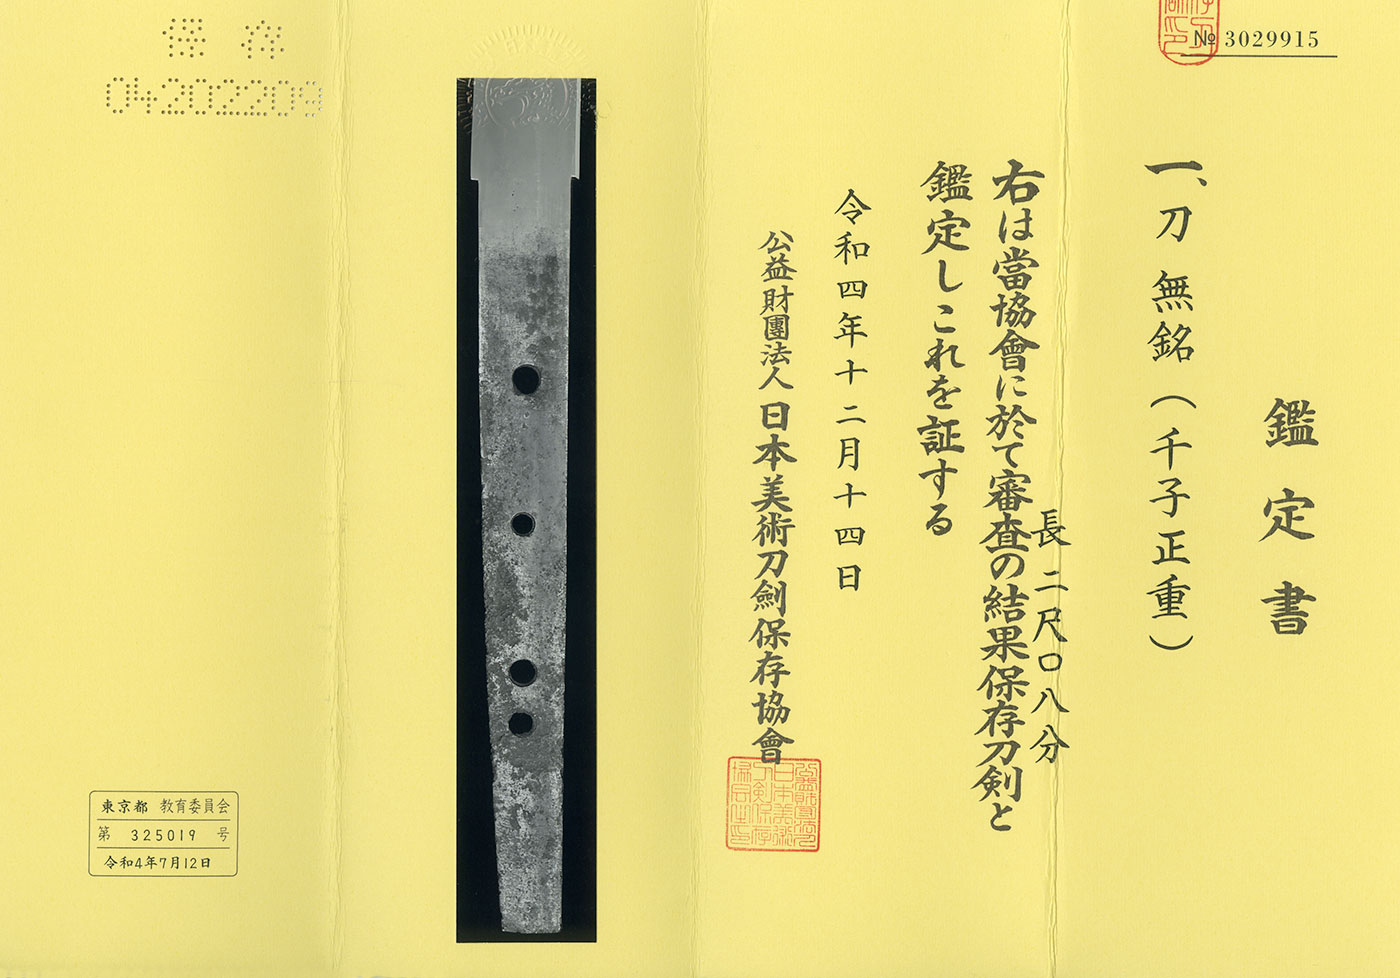 № 3029915
鑑定書
一、刀 無銘（千子正重）
長 二尺〇八分
右は當協會に於て審査の結果保存刀剣と
鑑定しこれを証する
令和四年十二月十四日
公益財團法人 日本美術刀劍保存協會
保存
04202209
東京都 教育委員会
第 325019 号
令和4年7月12日